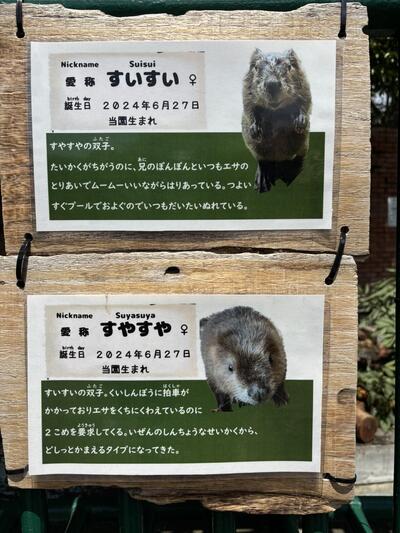 Nickname Suisui
愛称 すいすい ♀
birth day
誕生日 2024年6月27日
当園生まれ
ふたご
すやすやの双子。
あに
たいかくがちがうのに、兄のぽんぽんといつもエサの
とりあいでムームーいいながらはりあっている。つよい
すぐプールでおよぐのでいつもだいたいぬれている。
Nickname Suyasuya
愛称 すやすや ♀
birth day
誕生日 2024年6月27日
当園生まれ
ふたご はくしゃ
すいすいの双子。くいしんぼうに拍車が
かかっておりエサをくちにくわえているのに
ようきゅう
2こめを要求してくる。いぜんのしんちょうなせいかくから、
どしっとかまえるタイプになってきた。